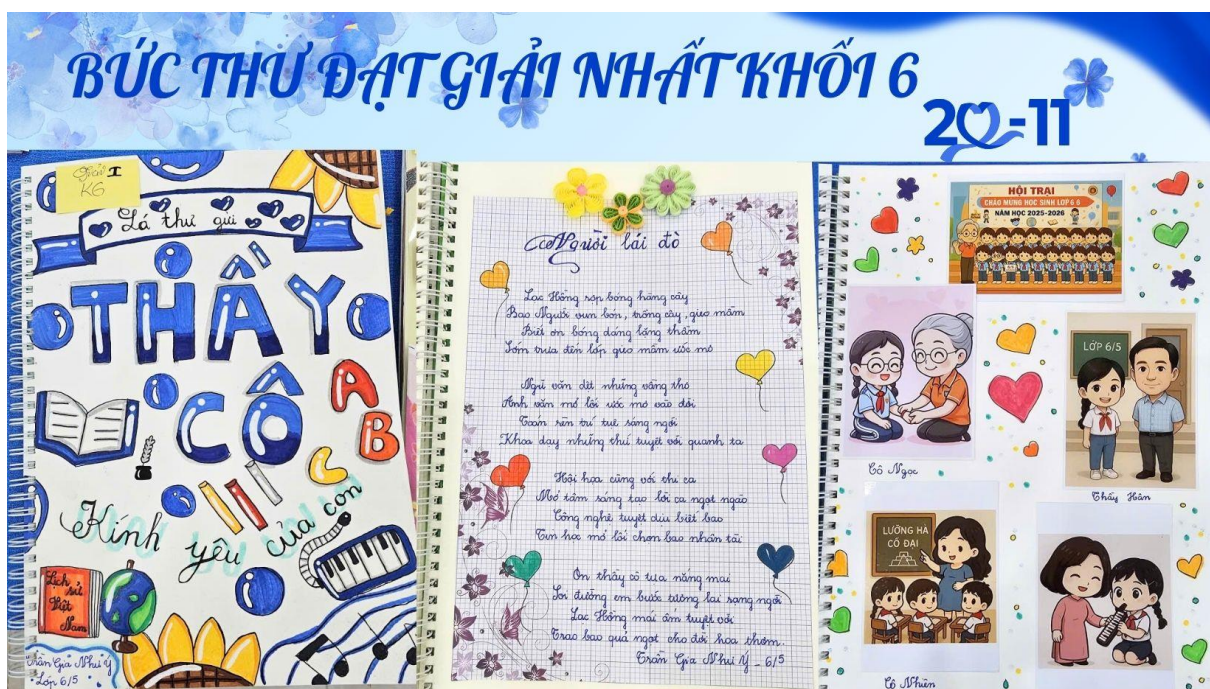 BỨC THƯ ĐẠT GIẢI NHẤT KHỐI 6
20-11
Giải I
K6
Lá thư gửi
THẦY
CÔ
A
B
C
Kính yêu của con
Lịch sử
Việt
Nam
Trần Gia Như Ý
Lớp 6/5
Người lái đò
Lạc Hồng rợp bóng hàng cây
Bao Người vun bón, trồng cây, gieo mầm
Biết ơn bóng dáng lặng thầm
Sớm trưa đến lớp gieo mầm ước mơ
Ngữ văn dệt những vâng thơ
Anh văn mở lối ước mơ vào đời
Toán rèn trí tuệ sáng ngời
Khoa dạy những thứ tuyệt vời quanh ta
Hội họa cùng với thi ca
Mở tâm sáng tạo lời ca ngọt ngào
Công nghệ tuyệt diệu biết bao
Tin học mở lối chọn bao nhân tài
Ơn thầy cô tựa nắng mai
Soi đường em bước tương lai sáng ngời
Lạc Hồng mái ấm tuyệt vời
Trao bao quả ngọt cho đời hoa thơm.
Trần Gia Như Ý - 6/5
HỘI TRẠI
CHÀO MỪNG HỌC SINH LỚP 6 6
NĂM HỌC 2025-2026
Cô Ngọc
LỚP 6/5
Thầy Hân
LƯỠNG HÀ
CỔ ĐẠI
Cô Nhiên